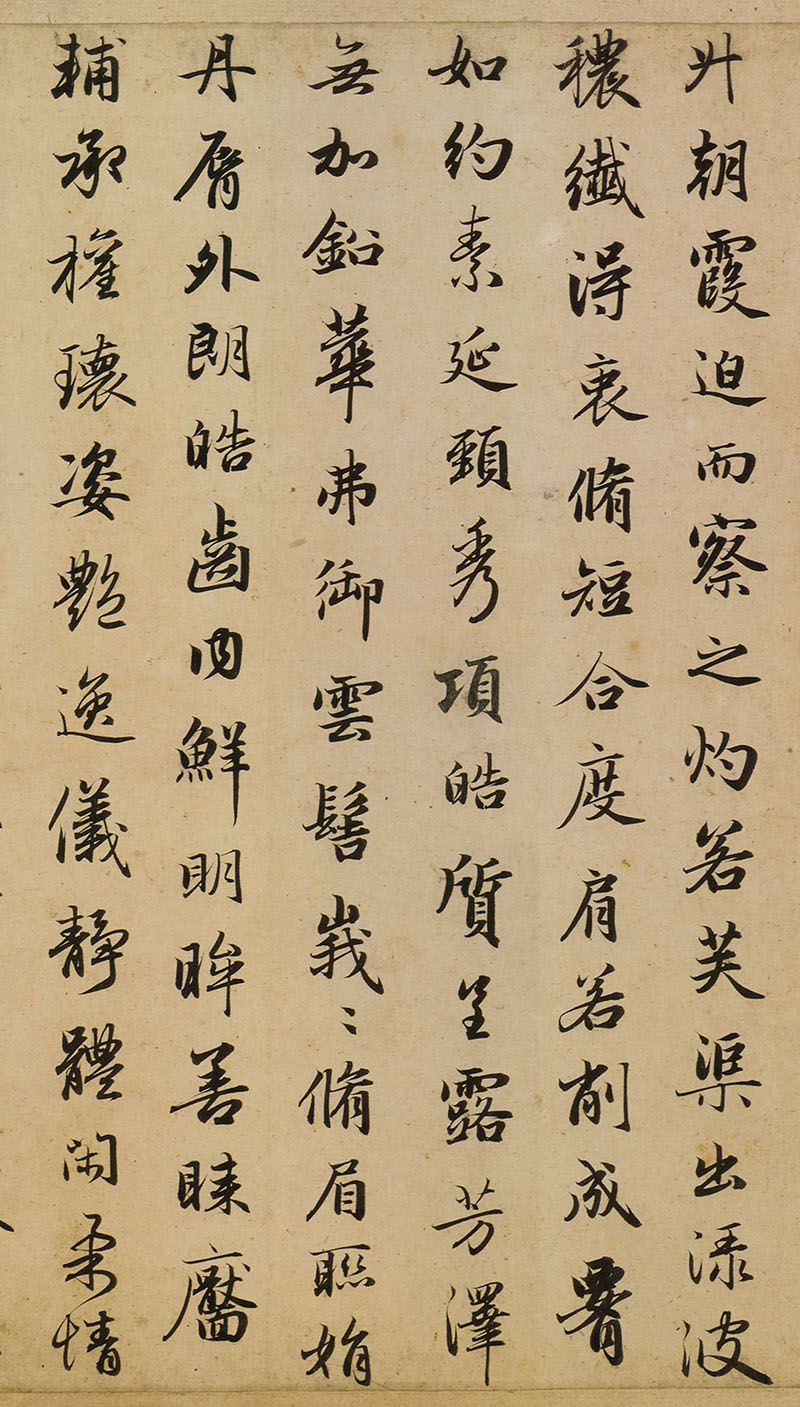 升朝霞迫而察之灼若芙渠出渌波
穠纖得衷脩短合度肩若削成署
如約素延頸秀項皓質呈露芳澤
無加鉛華弗御雲髻峩〻脩眉聯娟
丹脣外朗皓齒內鮮明眸善睞靨
輔承權瓌姿艷逸儀靜體閑柔情